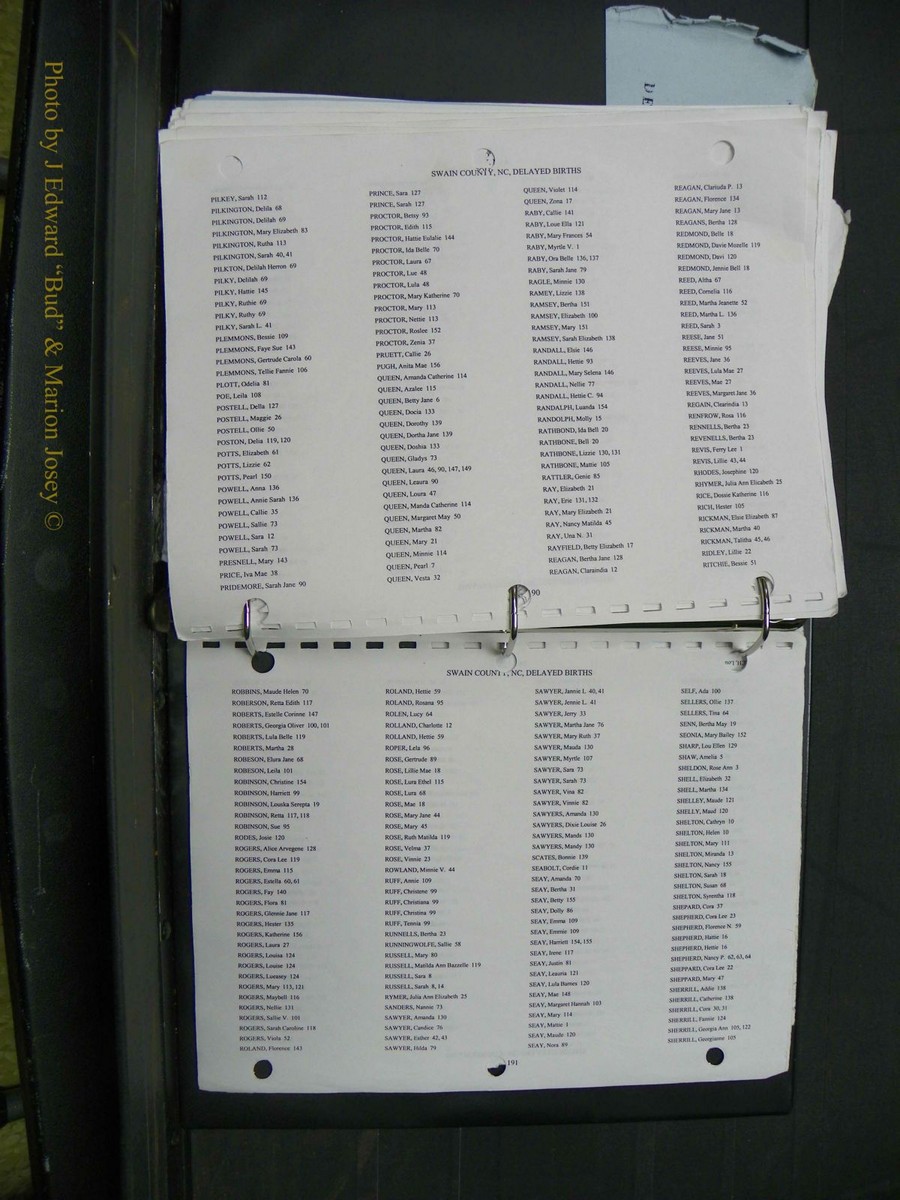 Photo by J Edward "Bud" & Marion Josey ©
SWAIN COUNTY, NC, DELAYED BIRTHS
PILKEY, Sarah 112
PILKINGTON, Delila 68
PILKINGTON, Delilah 69
PILKINGTON, Mary Elizabeth 83
PILKINGTON, Rutha 113
PILKINGTON, Sarah 40, 41
PILKTON, Delilah Herron 69
PILKY, Delilah 69
PILKY, Hattie 145
PILKY, Ruthie 69
PILKY, Ruthy 69
PILKY, Sarah L. 41
PLEMMONS, Bessie 109
PLEMMONS, Faye Sue 143
PLEMMONS, Gertrude Carola 60
PLEMMONS, Tellie Fannie 106
PLOTT, Odelia 81
POE, Leila 108
POSTELL, Della 127
POSTELL, Maggie 26
POSTELL, Ollie 50
POSTON, Delia 119, 120
POTTS, Elizabeth 61
POTTS, Lizzie 62
POTTS, Pearl 150
POWELL, Anna 136
POWELL, Annie Sarah 136
POWELL, Callie 35
POWELL, Sallie 73
POWELL, Sara 12
POWELL, Sarah 73
PRESNELL, Mary 143
PRICE, Iva Mae 38
PRIDEMORE, Sarah Jane 90
PRINCE, Sara 127
PRINCE, Sarah 127
PROCTOR, Betsy 93
PROCTOR, Edith 115
PROCTOR, Hattie Eulalie 144
PROCTOR, Ida Belle 70
PROCTOR, Laura 67
PROCTOR, Lue 48
PROCTOR, Lula 48
PROCTOR, Mary Katherine 70
PROCTOR, Mary 113
PROCTOR, Nettie 113
PROCTOR, Roslee 152
PROCTOR, Zenia 37
PRUETT, Callie 26
PUGH, Anita Mae 156
QUEEN, Amanda Catherine 114
QUEEN, Azalee 115
QUEEN, Betty Jane 6
QUEEN, Docia 133
QUEEN, Dorothy 139
QUEEN, Dortha Jane 139
QUEEN, Doshia 133
QUEEN, Gladys 73
QUEEN, Laura 46, 90, 147, 149
QUEEN, Leaura 90
QUEEN, Loura 47
QUEEN, Manda Catherine 114
QUEEN, Margaret May 50
QUEEN, Martha 82
QUEEN, Mary 21
QUEEN, Minnie 114
QUEEN, Pearl 7
QUEEN, Vesta 32
QUEEN, Violet 114
QUEEN, Zona 17
RABY, Callie 141
RABY, Loue Ella 121
RABY, Mary Frances 54
RABY, Myrtle V. 1
RABY, Ora Belle 136, 137
RABY, Sarah Jane 79
RAGLE, Minnie 130
RAMEY, Lizzie 138
RAMSEY, Bertha 151
RAMSEY, Elizabeth 100
RAMSEY, Mary 151
RAMSEY, Sarah Elizabeth 138
RANDALL, Elsie 146
RANDALL, Hettie 93
RANDALL, Mary Selena 146
RANDALL, Nellie 77
RANDALL, Hettie C. 94
RANDALPH, Luanda 154
RANDOLPH, Molly 15
RATHBOND, Ida Bell 20
RATHBONE, Bell 20
RATHBONE, Lizzie 130, 131
RATHBONE, Mattie 105
RATTLER, Genie 85
RAY, Elizabeth 21
RAY, Erie 131, 132
RAY, Mary Elizabeth 21
RAY, Nancy Matilda 45
RAY, Una N. 31
RAYFIELD, Betty Elizabeth 17
REAGAN, Bertha Jane 128
REAGAN, Claraindia 12
REAGAN, Clarinda P. 13
REAGAN, Florence 134
REAGAN, Mary Jane 13
REAGANS, Bertha 128
REDMOND, Belle 18
REDMOND, Davie Mozelle 119
REDMOND, Davi 120
REDMOND, Jennie Bell 18
REED, Altha 67
REED, Cornelia 116
REED, Martha Jeanette 52
REED, Martha L. 136
REED, Sarah 3
REESE, Jane 51
REESE, Minnie 95
REEVES, Jane 36
REEVES, Lula Mae 27
REEVES, Mae 27
REEVES, Margaret Jane 36
REGAIN, Clearindia 13
RENFROW, Rosa 116
RENNELLS, Bertha 23
REVENELLS, Bertha 23
REVIS, Ferry Lee 1
REVIS, Lillie 43, 44
RHODES, Josephine 120
RHYMER, Julia Ann Elizabeth 25
RICE, Dossie Katherine 116
RICH, Hester 105
RICKMAN, Elsie Elizabeth 87
RICKMAN, Martha 40
RICKMAN, Talitha 45, 46
RIDLEY, Lillie 22
RITCHIE, Bessie 51
90
SWAIN COUNTY, NC, DELAYED BIRTHS
ROBBINS, Maude Helen 70
ROBERSON, Retta Edith 117
ROBERTS, Estelle Corinne 147
ROBERTS, Georgia Oliver 100, 101
ROBERTS, Lula Belle 119
ROBERTS, Martha 28
ROBESON, Elura Jane 68
ROBESON, Leila 101
ROBINSON, Christine 154
ROBINSON, Harriett 99
ROBINSON, Louska Serepta 19
ROBINSON, Retta 117, 118
ROBINSON, Sue 95
RODES, Josie 120
ROGERS, Alice Arvegene 128
ROGERS, Cora Lee 119
ROGERS, Emma 115
ROGERS, Estella 60, 61
ROGERS, Fay 140
ROGERS, Flora 81
ROGERS, Glennie Jane 117
ROGERS, Hester 135
ROGERS, Katherine 156
ROGERS, Laura 27
ROGERS, Louisa 124
ROGERS, Louise 124
ROGERS, Lueasey 124
ROGERS, Mary 113, 121
ROGERS, Maybell 116
ROGERS, Nellie 131
ROGERS, Sallie V. 101
ROGERS, Sarah Caroline 118
ROGERS, Viola 52
ROLAND, Florence 143
ROLAND, Hettie 59
ROLAND, Rosana 95
ROLEN, Lucy 64
ROLLAND, Charlotte 12
ROLLAND, Hettie 59
ROPER, Lela 96
ROSE, Gertrude 89
ROSE, Lillie Mae 18
ROSE, Lura Ethel 115
ROSE, Lura 68
ROSE, Mae 18
ROSE, Mary Jane 44
ROSE, Mary 45
ROSE, Ruth Matilda 119
ROSE, Velma 37
ROSE, Vinnie 23
ROWLAND, Minnie V. 44
RUFF, Annie 109
RUFF, Christene 99
RUFF, Christiana 99
RUFF, Christina 99
RUFF, Tennia 99
RUNNELLS, Bertha 23
RUNNINGWOLFE, Sallie 58
RUSSELL, Mary 80
RUSSELL, Matilda Ann Bazzelle 119
RUSSELL, Sara 8
RUSSELL, Sarah 8, 14
RYMER, Julia Ann Elizabeth 25
SANDERS, Nannie 73
SAWYER, Amanda 130
SAWYER, Candice 76
SAWYER, Esther 42, 43
SAWYER, Hilda 79
SAWYER, Jannie L 40, 41
SAWYER, Jennie L. 41
SAWYER, Jerry 33
SAWYER, Martha Jane 76
SAWYER, Mary Ruth 37
SAWYER, Mauda 130
SAWYER, Myrtle 107
SAWYER, Sara 73
SAWYER, Sarah 73
SAWYER, Vina 82
SAWYER, Vinnie 82
SAWYERS, Amanda 130
SAWYERS, Dixie Louise 26
SAWYERS, Manda 130
SAWYERS, Mandy 130
SCATES, Bonnie 139
SEABOLT, Cordie 11
SEAY, Amanda 70
SEAY, Bertha 31
SEAY, Betty 155
SEAY, Dolly 86
SEAY, Emma 109
SEAY, Emmie 109
SEAY, Harriett 154, 155
SEAY, Irene 117
SEAY, Justin 81
SEAY, Leauria 121
SEAY, Lula Barnes 120
SEAY, Mae 148
SEAY, Margaret Hannah 103
SEAY, Mary 114
SEAY, Mattie 1
SEAY, Maude 120
SEAY, Nora 89
SELF, Ada 100
SELLERS, Ollie 137
SELLERS, Tina 64
SENN, Bertha May 19
SEONIA, Mary Bailey 152
SHARP, Lou Ellen 129
SHAW, Amelia 5
SHELDON, Rose Ann 3
SHELL, Elizabeth 32
SHELL, Martha 134
SHELLEY, Maude 121
SHELLY, Maud 120
SHELTON, Cathryn 10
SHELTON, Helen 10
SHELTON, Mary 111
SHELTON, Miranda 13
SHELTON, Nancy 155
SHELTON, Sarah 18
SHELTON, Susan 68
SHELTON, Syrentha 118
SHEPARD, Cora 37
SHEPHERD, Cora Lee 23
SHEPHERD, Florence N 59
SHEPHERD, Hattie 16
SHEPHERD, Hettie 16
SHEPHERD, Nancy P. 62, 63, 64
SHEPPARD, Cora Lee 22
SHEPPARD, Mary 47
SHERRILL, Addie 138
SHERRILL, Catherine 138
SHERRILL, Cora 30, 31
SHERRILL, Fannie 124
SHERRILL, Georgia Ann 105, 122
SHERRILL, Georgianne 105
191